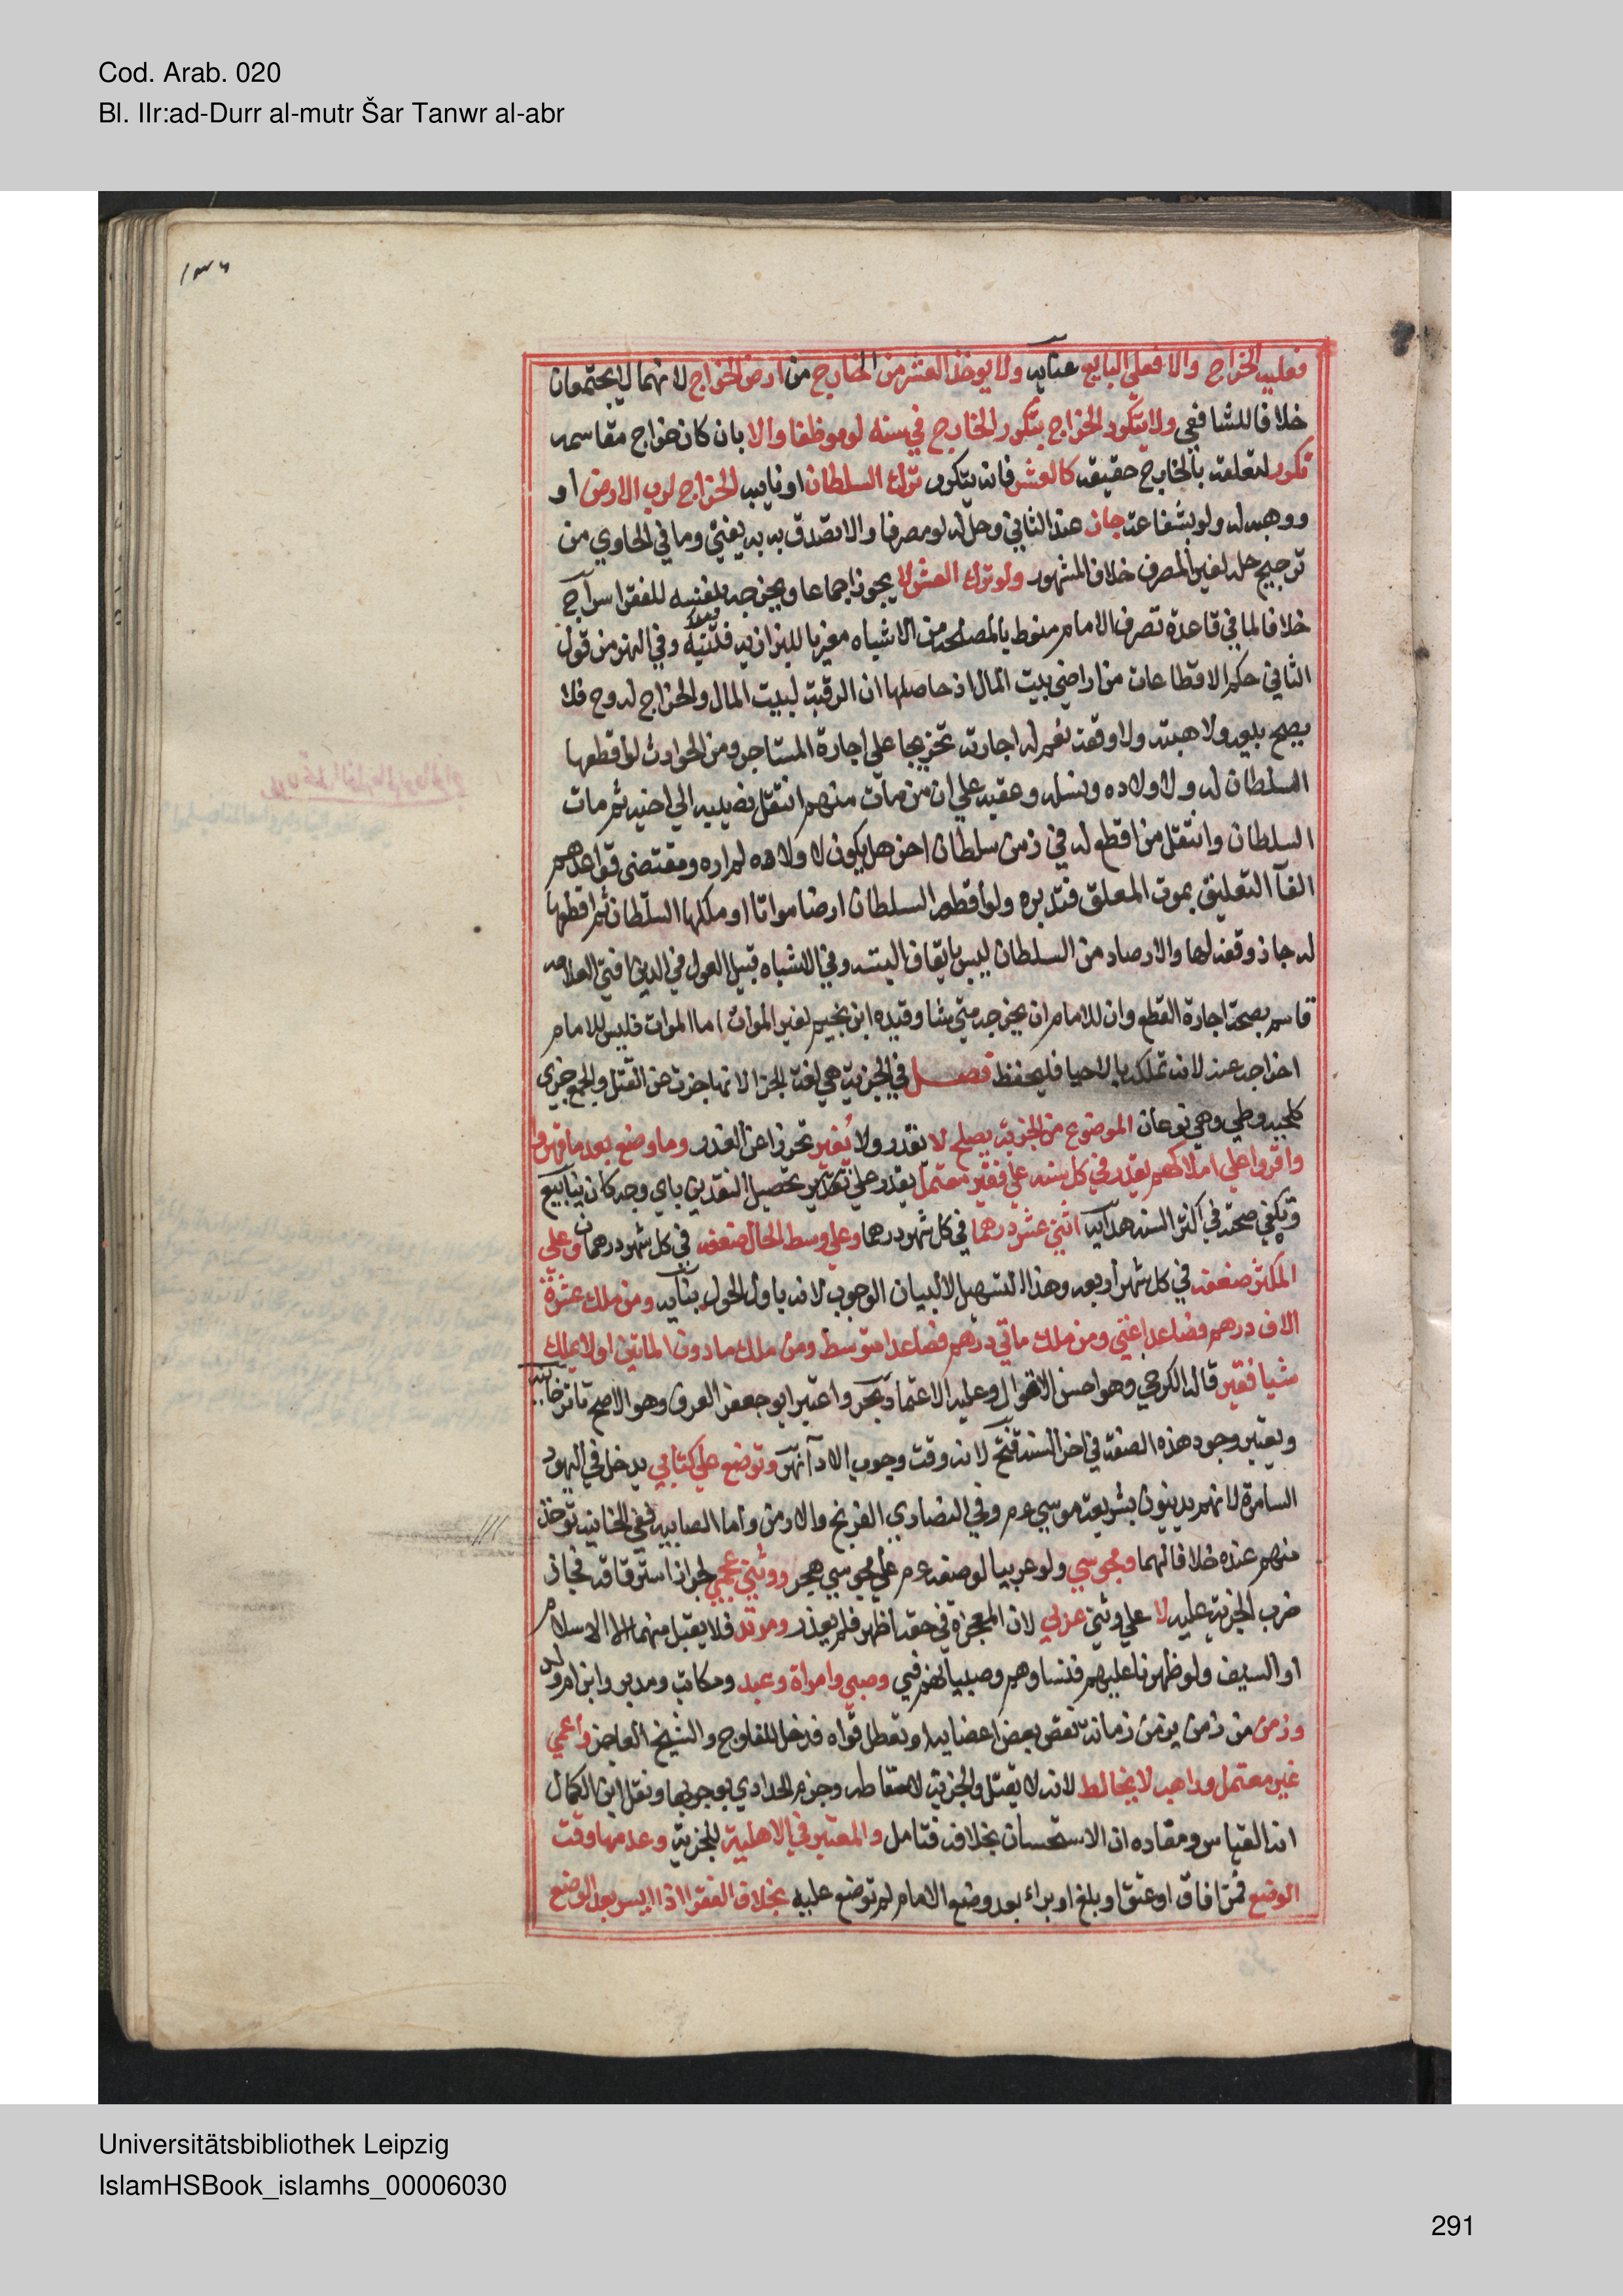 Cod. Arab. 020
Bl. IIr:ad-Durr al-mutr Šar Tanwr al-abr
فعليه الخراج والا فعلي البايع عنايه ولا يوخذ العشر من الخارج من ارض الخراج لانهما لا يجتمعان
خلافا للشافعي ولا يتكرر الخراج بتكرر الخارج في سنه لو موظفا والا بان كان خراج مقاسمه
تكرر لتعلقه بالخارج حقيقه كالعشر فانه يتكرر ترك السلطان او نايبه الخراج لرب الارض او
ووهبه له ولو بشفاعة جاز عند الثاني وحل له لو مصرفا والا تصدق به به يفتي وما في الحاوي من
ترجيح حله لغير المصرف خلاف المشهور ولو ترك العشر لا يجوز اجماعا ويخرجه بنفسه للفقرا سراج
خلافا لما في قاعدة تصرف الامام منوط بالمصلحة من الاشباه معزيا للبزازيه فتنبه وفي النهر من قول
الثاني حكم الاقطاعات من اراضي بيت المال اذ حاصلها ان الرقبة لبيت المال والخراج له وح فلا
يصح بيعه ولا هبته ولا وقفه نعم له اجارته تخريجا علي اجارة المستاجر ومن الحوادث لو اقطعها
السلطان له ولاولاده ونسله وعقبه علي ان من مات منهم انتقل نصيبه الي اخيه ثم مات
السلطان وانتقل من اقطع له في زمن سلطان اخر هل يكون لاولاده لم اره ومقتضي قواعدهم
الغآ التعليق بموت المعلق فتدبره ولو اقطعه السلطان ارضا مواتا او ملكها السلطان ثم اقطعها
له جاز وقفه لها والارصاد من السلطان ليس بايقاف البته وفي الاشباه قبيل القول في الدين افتي العلامه
قاسم بصحة اجارة المقطع وان للامام ان يخرجه متي شا وقيده ابن نجيم لغير الموات اما الموات فليس للامام
اخراجه عنه لانه تملكه بالاحيا فليحفظ فصل في الجزية هي لغة الجزا لانها جزت عن القتل والجمع جزي
كلحيه ولحي وهي نوعان الموضوع من الجزية بصلح لا تقدر ولا تغير تحرزا عن الغدر وما وضع بعد ما قهروا
واقروا علي املاكهم يقدر في كل سنه علي فقير معتمل يقدر علي تحصيل النقدين باي وجه كان ينابيع
وتكفي صحته في اكثر السنه هدايه اثني عشر درهما في كل شهر درهما وعلي وسط الحال ضعفه في كل شهر درهمان وعلي
المكثر ضعفه في كل شهر اربعه وهذا للتسهيل لا لبيان الوجوب لانه باول الحول بنايه ومن ملك عشرة
الاف درهم فصاعدا غني ومن ملك ماتي درهم فصاعدا متوسط ومن ملك ما دون الماتين او لا يملك
شيا فقير قاله الكرخي وهو احسن الاقوال وعليه الاعتماد بحر واعتبر ابو جعفر العرف وهو الاصح تاترخانيه
ويعتبر وجود هذه الصفة في اخر السنه فتح لانه وقت وجوب الادآ نهر وتوضع علي كتابي يدخل في اليهود
السامرة لانهم يدينون بشريعة موسي عم وفي النصاري الفرنج والارمن واما الصابيه ففي الخانيه توخذ
منهم عنده خلافا لهما ومجوسي ولو عربيا لوضعه عم علي مجوسي هجر ووثني عجمي لجواز استرقاقه فجاز
ضرب الجزية عليه لا علي وثني عربي لان المعجزة في حقه اظهر فلم يعذر ومرتد فلا يقبل منهما الا الاسلام
او السيف ولو ظهرنا عليهم فنساوهم وصبيانهم في وصبي وامراة وعبد ومكاتب ومدبر وابن ام ولد
وزمن من زمن يزمن زمانة نقص بعض اعضايه او تعطل قواه فدخل المفلوج والشيخ العاجز واعمي
غير معتمل وراهب لا يخالط لانه لا يقتل والجزية لاسقاطه وجزم الحدادي بوجوبها ونقل ابن الكمال
انه القياس ومفاده ان الاستحسان بخلافه فتامل والمعتبر في الاهلية للجزية وعدمها وقت
الوضع فمن افاق او عتق او بلغ او براء بعد وضع الامام لم توضع عليه بخلاف الفقر اذا ايسر بعد الوضع
Universitätsbibliothek Leipzig
IslamHSBook_islamhs_00006030
291